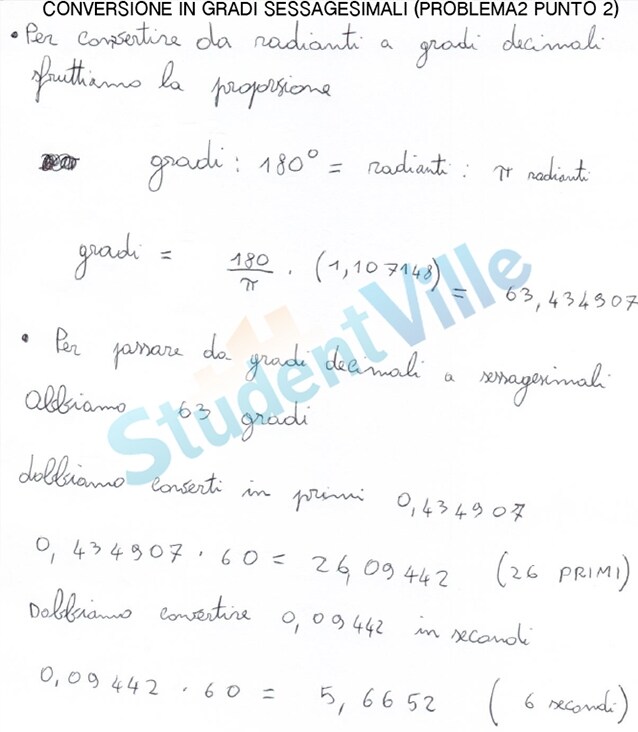 CONVERSIONE IN GRADI SESSAGESIMALI (PROBLEMA2 PUNTO 2)
• Per convertire da radianti a gradi decimali
sfruttiamo la proporzione
gradi : 180° = radianti : π radianti
gradi = 180/π · (1,107148) = 63,434907
• Per passare da gradi decimali a sessagesimali
abbiamo 63 gradi
dobbiamo converti in primi 0,434907
0,434907 · 60 = 26,09442 (26 PRIMI)
Dobbiamo convertire 0,09442 in secondi
0,09442 · 60 = 5,6652 (6 secondi)
StudentVille